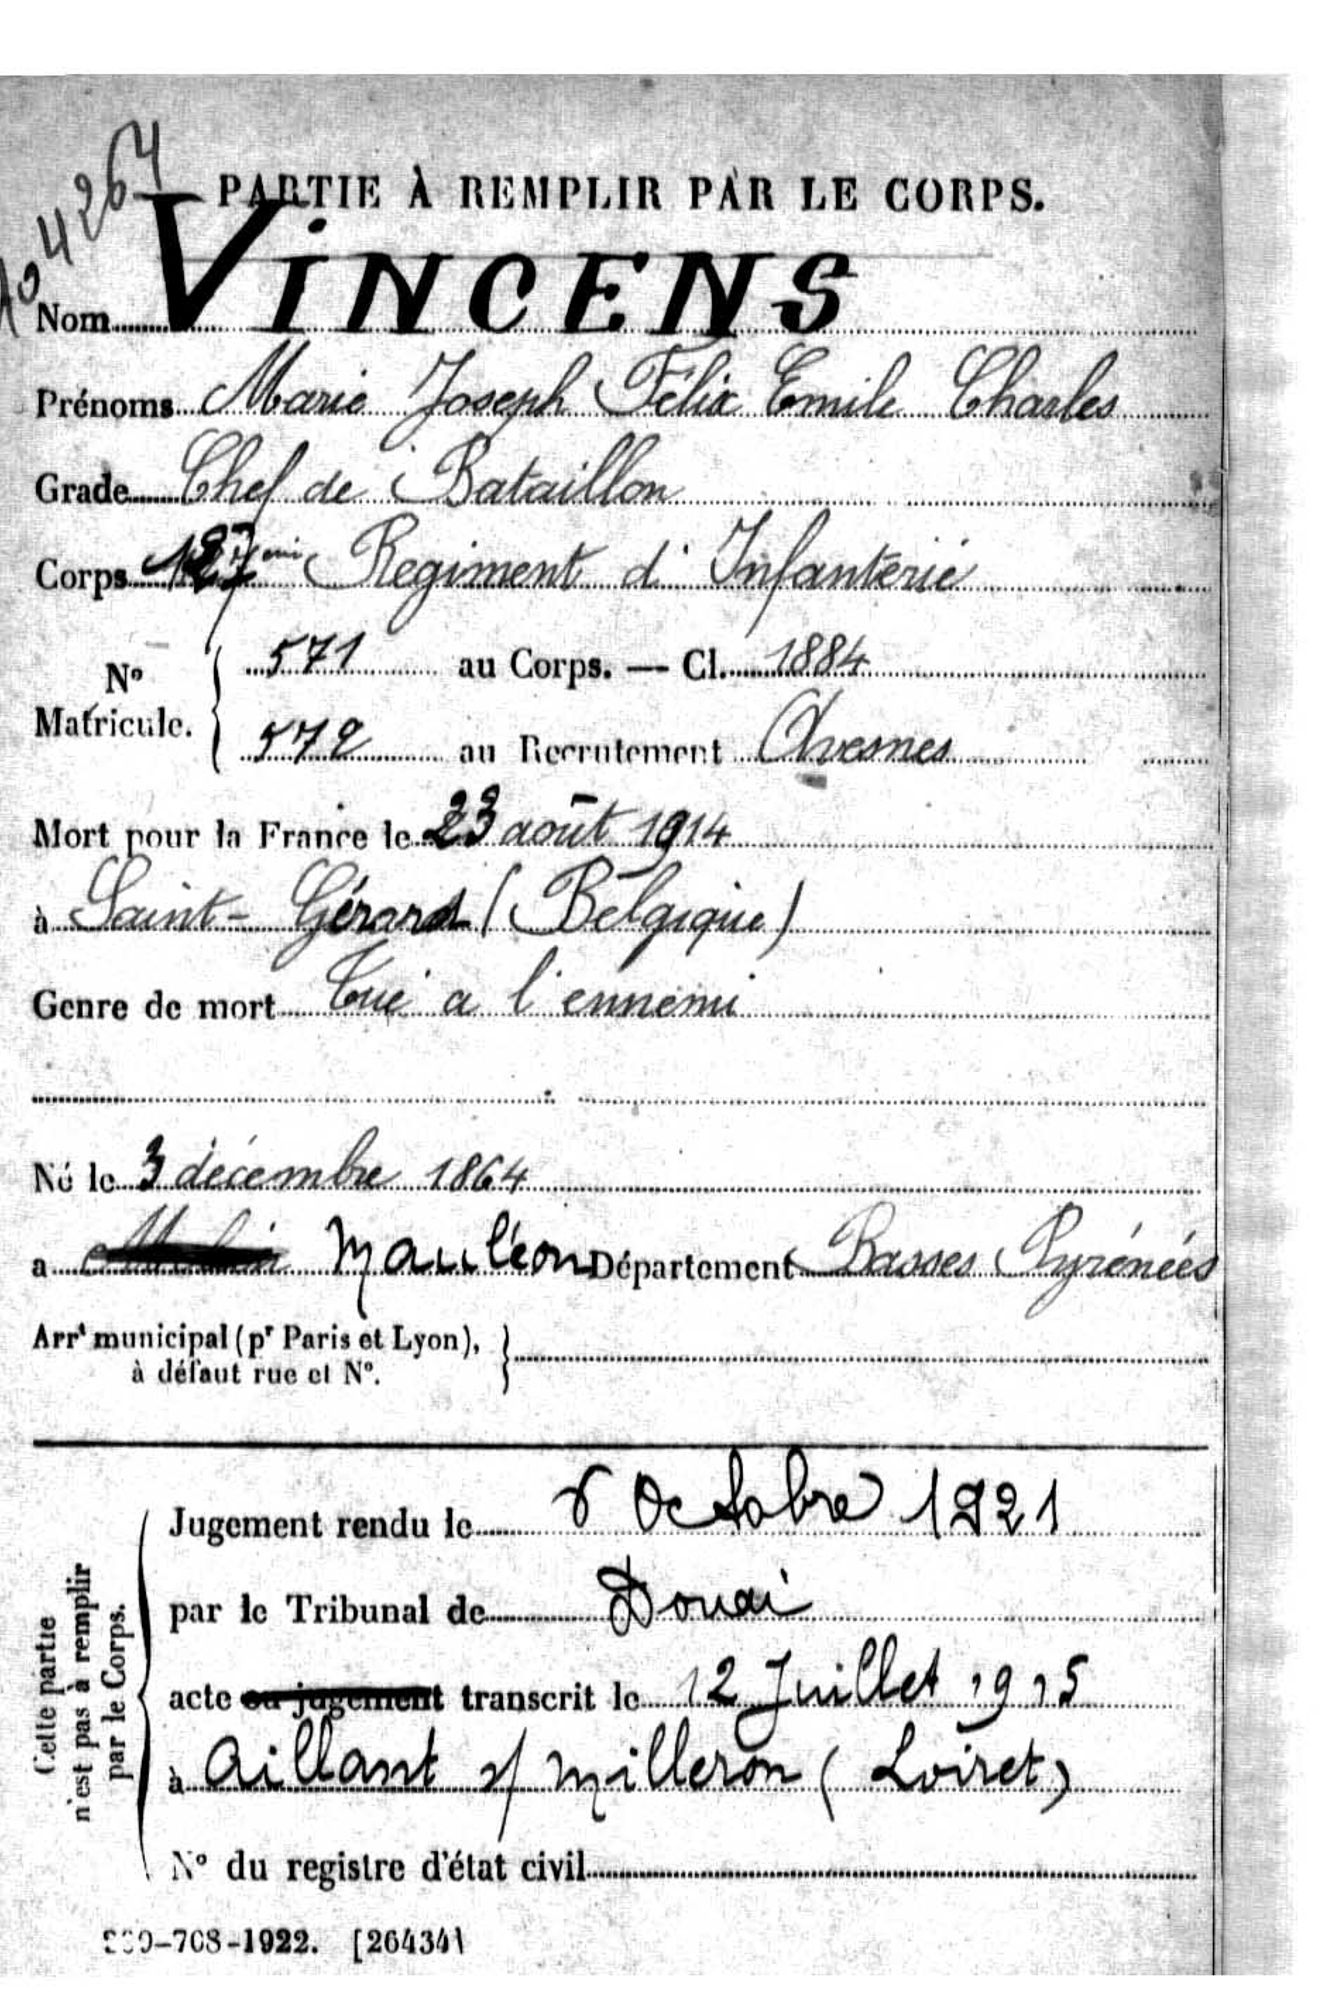 PARTIE À REMPLIR PAR LE CORPS.
Nom VINCENS
Prénoms Marie Joseph Félix Emile Charles
Grade Chef de Bataillon
Corps 127eme Regiment d'Infanterie
N° Matricule. { 571 au Corps. — Cl. 1884
572 au Recrutement Avesnes
Mort pour la France le 23 août 1914
à Saint-Gérard (Belgique)
Genre de mort Tué a l'ennemi
Né le 3 décembre 1864
a Mauléon Département Basses Pyrénées
Arrt municipal (pr Paris et Lyon), à défaut rue et N°. }
Cette partie n'est pas à remplir par le Corps.
Jugement rendu le 6 Octobre 1921
par le Tribunal de Douai
acte ou jugement transcrit le 12 Juillet 1915
à Aillant s/ Milleron (Loiret)
N° du registre d'état civil
-708-1922. [26434]